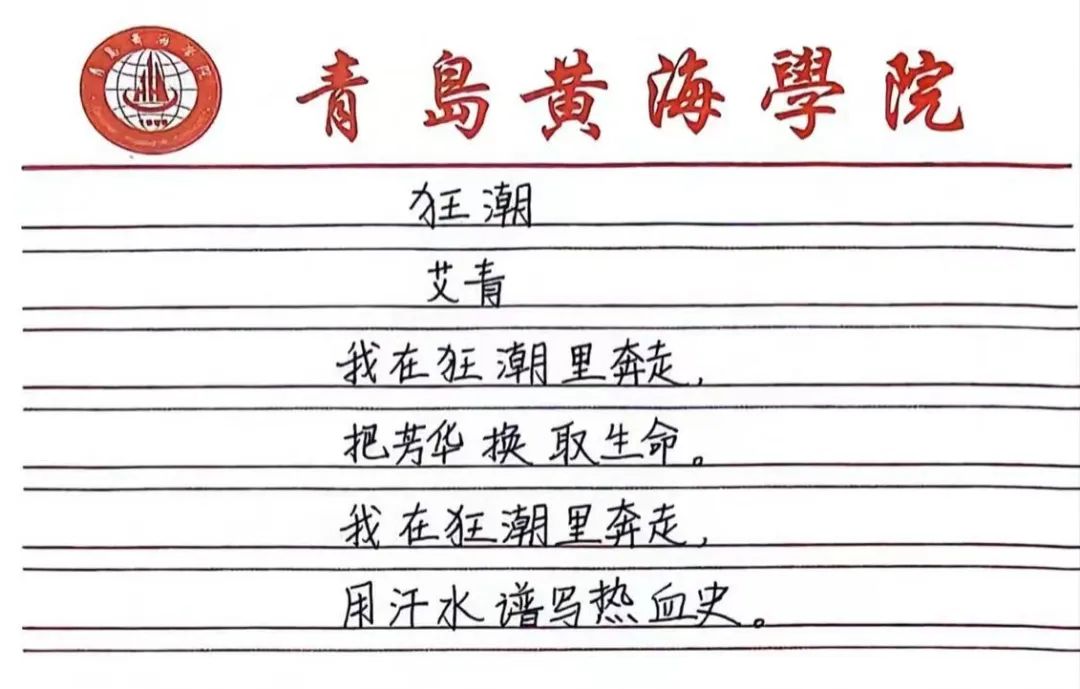 青島黄海學院
青岛黄海学院
1996
狂潮
艾青
我在狂潮里奔走，
把芳华换取生命。
我在狂潮里奔走，
用汗水谱写热血史。